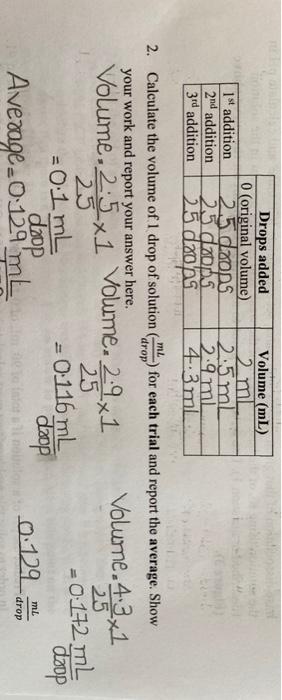 Drops added Volume (mL)
0 (original volume) 2 mL
1st addition 25 drops 2.5 mL
2nd addition 25 drops 2.9 mL
3rd addition 25 drops 4.3 mL
2. Calculate the volume of 1 drop of solution (mL/drop) for each trial and report the average. Show
your work and report your answer here.
Volume = 2.5/25 x1 Volume = 2.9/25 x1 Volume = 4.3/25 x1
= 0.1 mL/drop = 0.116 mL/drop = 0.172 mL/drop
Average = 0.129 mL 0.129 mL/drop